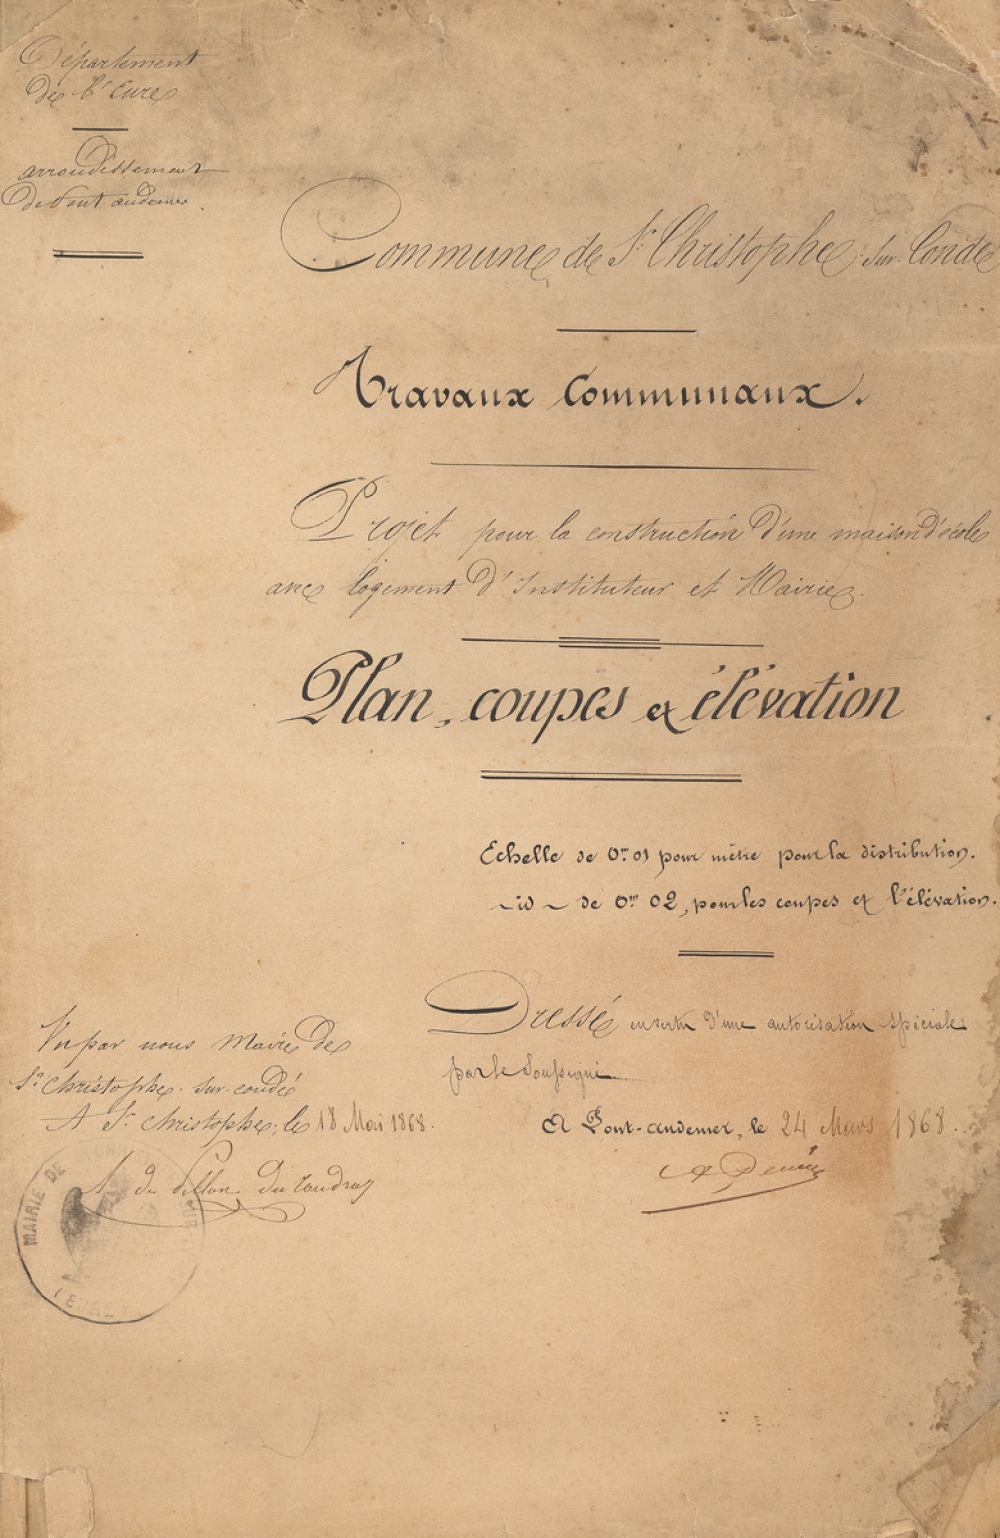 Département
de l'Eure
arrondissement
de Pont audemer.
Commune de St Christophe sur Condé
Travaux Communaux.
Projet pour la construction d'une maison d'école
avec logement d'Instituteur et Mairie.
Plan, coupes et élévation
Echelle de 0m 01 pour mètre pour la distribution.
- id - de 0m 02, pour les coupes et l'élévation.
Dressé en vertu d'une autorisation spéciale
par le Soussigné
A Pont-audemer, le 24 Mars 1868.
Vu par nous Maire de
St Christophe sur condé
A St christophe, le 18 Mai 1868.
MAIRIE DE